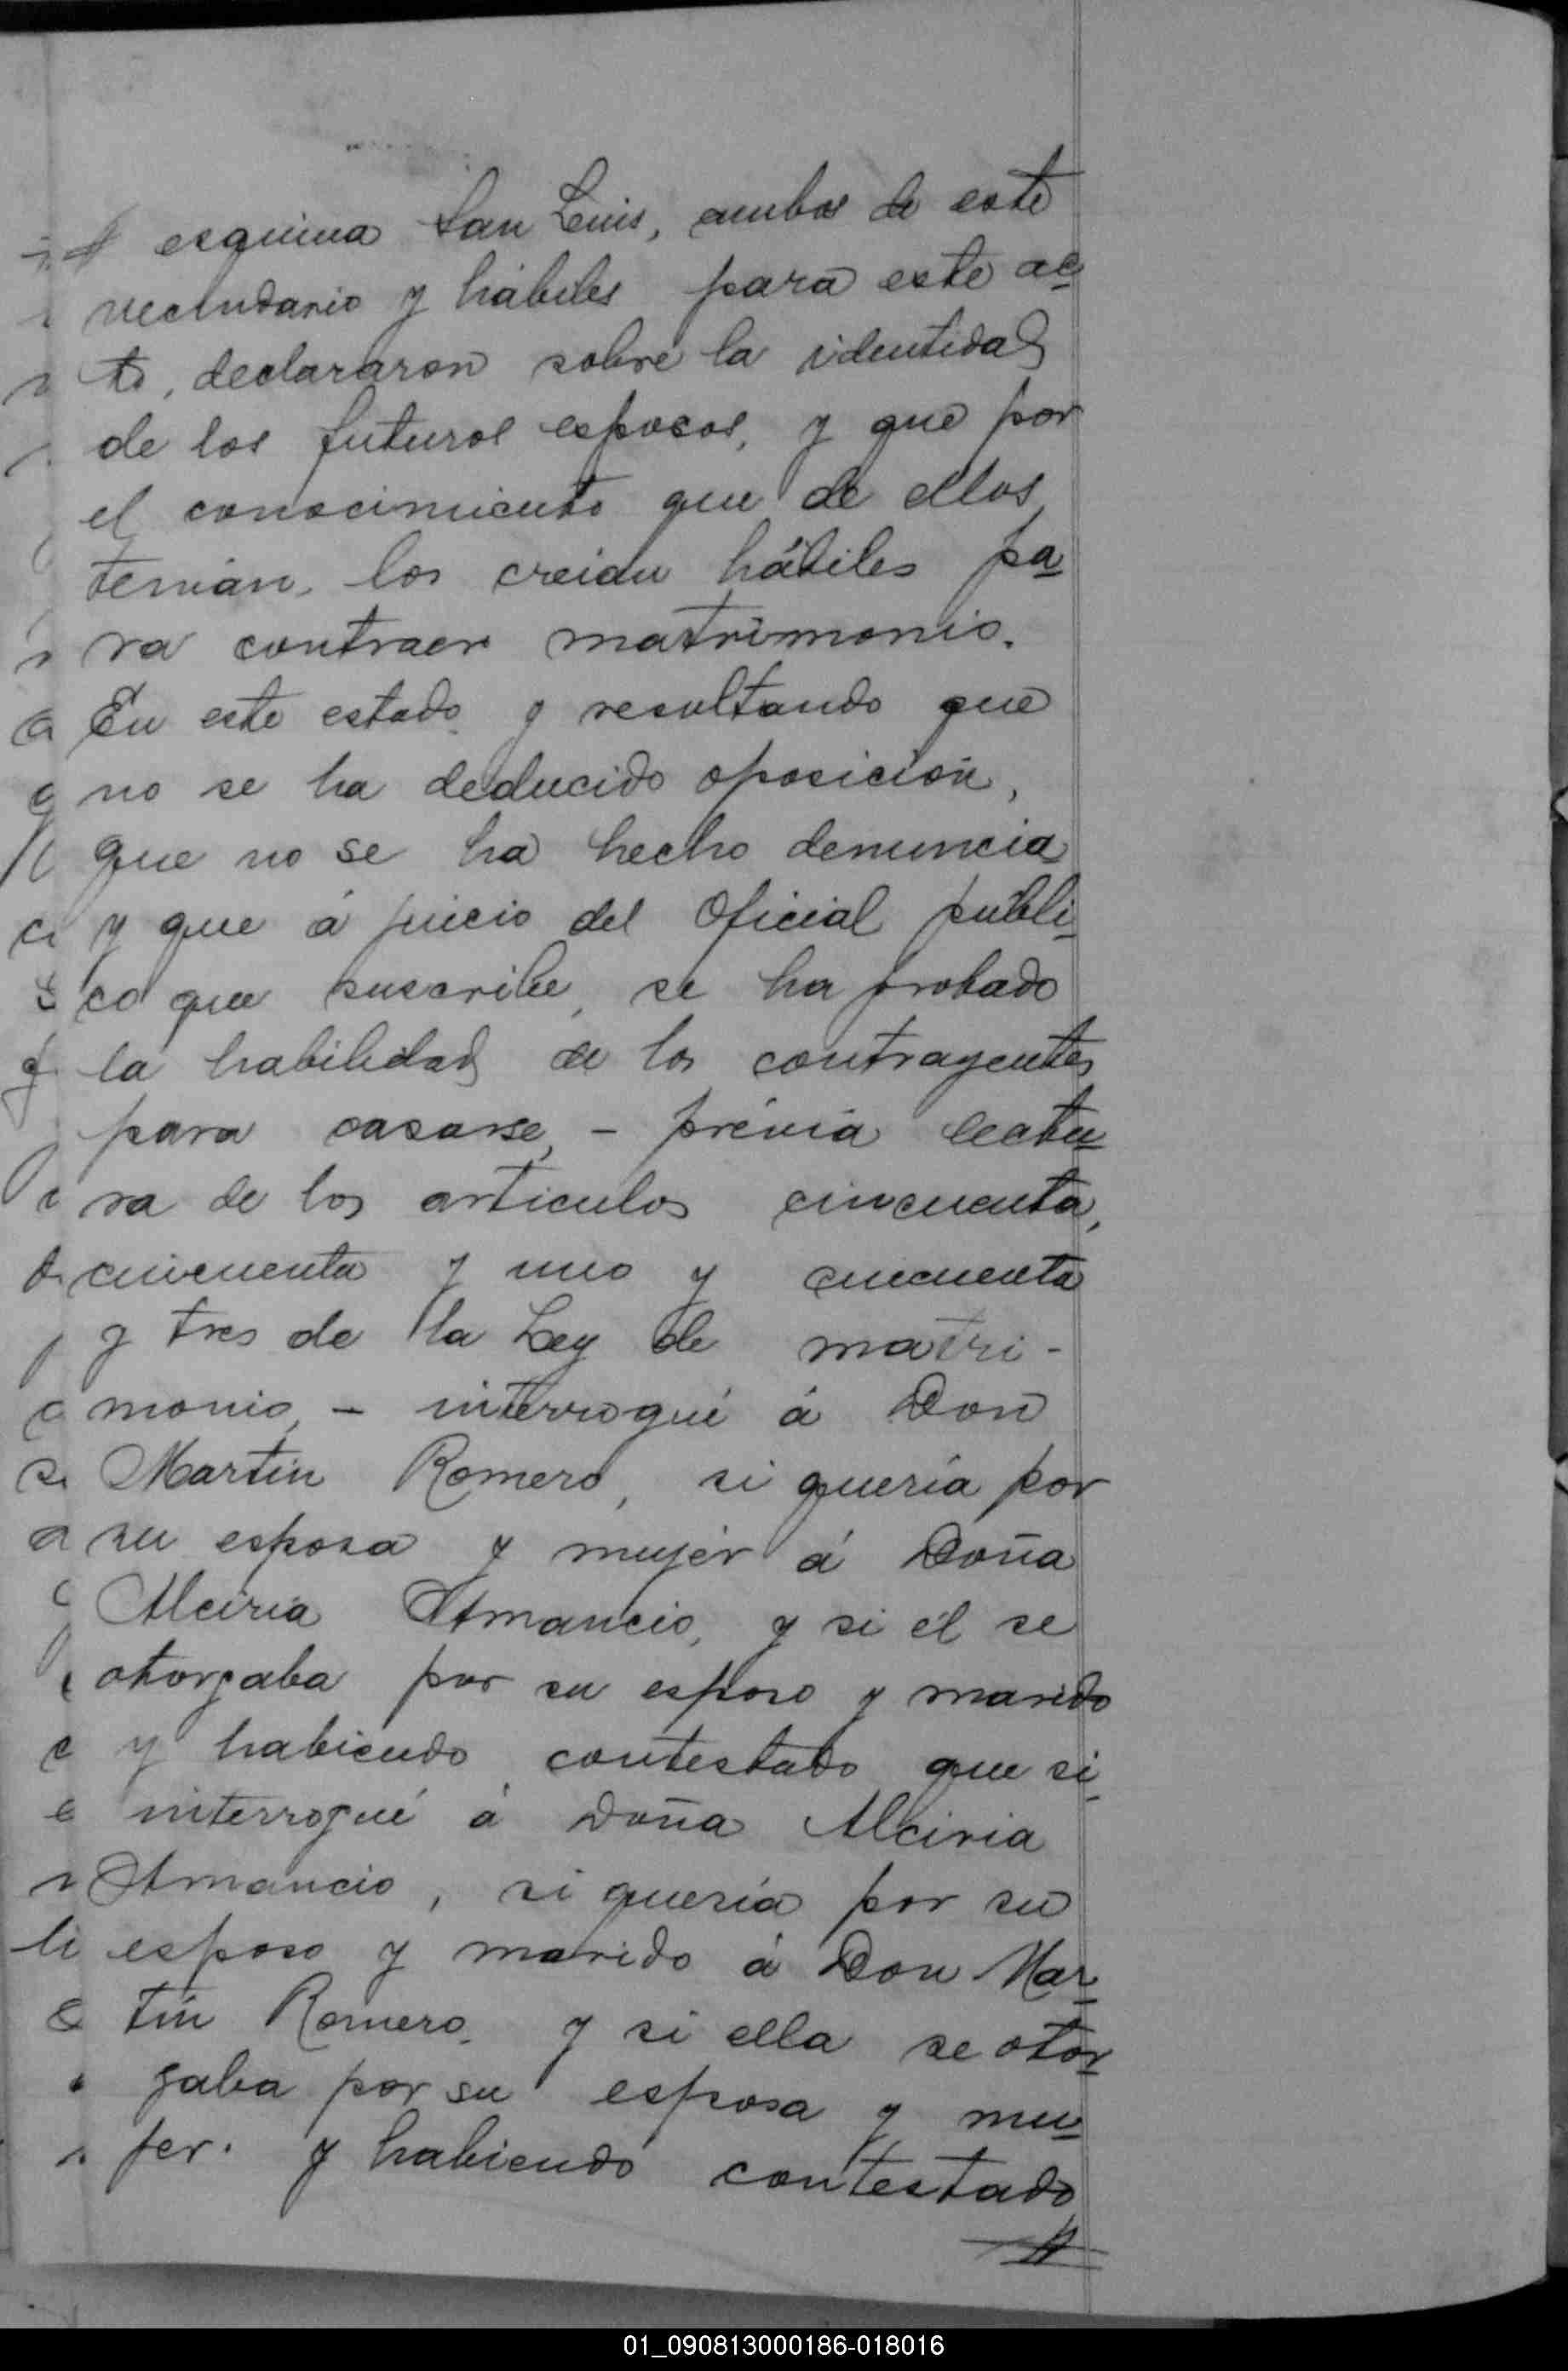 esquina San Luis, ambos de este
vecindario y hábiles para este ac
to, declararon sobre la identidad
de los futuros esposos, y que por
el conocimiento que de ellos
tenian, los creian hábiles pa
ra contraer matrimonio.
En este estado y resultando que
no se ha deducido oposición,
que no se ha hecho denuncia
y que á juicio del Oficial públi
co que suscribe, se ha probado
la habilidad de los contrayentes
para casarse, - prévia lectu
ra de los articulos cincuenta,
cincuenta y uno y cincuenta
y tres de la Ley de matri-
monio, - interrogué á Don
Martin Romero, si quería por
su esposa y mujer á Doña
Alciria Amancio, y si él se
otorgaba por su esposo y marido
y habiendo contestado que si
interrogué á Doña Alciria
Amancio, si quería por su
esposo y marido á Don Mar
tín Romero, y si ella se otor
gaba por su esposa y mu
jer. y habiendo contestado
01_090813000186-018016